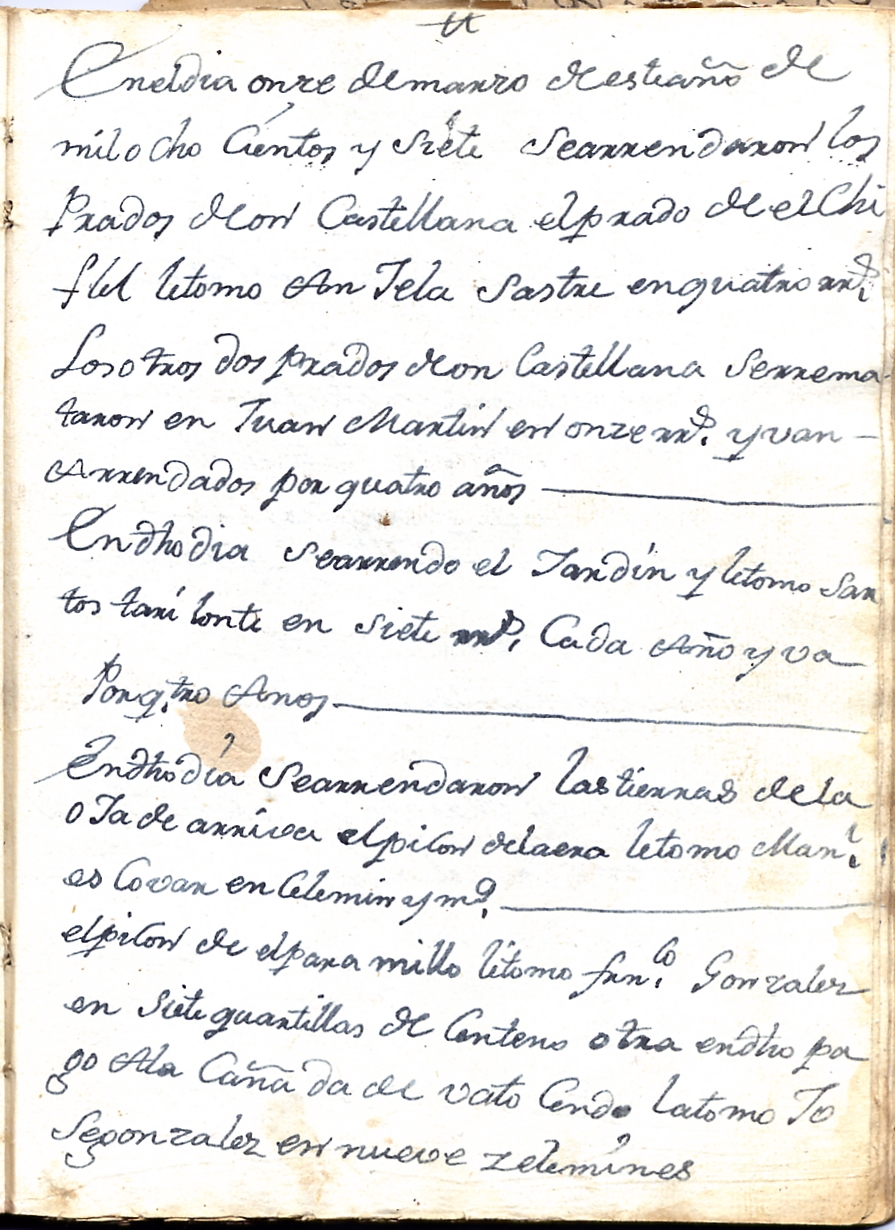 En el dia onze de marzo de este año de
mil ocho Cientos y Siete Se arrendaron los
Prados de on Castellana el prado de el Chi
flel le tomo An Jela Sastre en quatro rrs.
Los otros dos prados de on Castellana Se rrema-
taron en Juan Martin en onze rrs. y van -
Arrendados por quatro años
En dho dia Se arrendo el Jardin y le tomo San
tos en Siete rrs. Cada Año y va
Por q.tro Anos
En dho dia Se arrendaron las tierras de la
o Ja de arriva el picon de la era le tomo Man.l
es Covar en Celemin y m.o
el picon de el para millo le tomo fran.co Gonzalez
en Siete quartillas de Centeno otra en dho pa
go A la Cañada de la tomo Jo
Se gonzalez en nueve zelemines